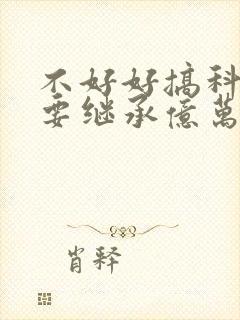 不好好搞科
要继承億萬
肖释